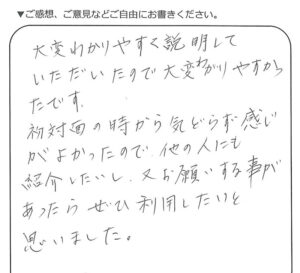 ▼ご感想、ご意見などご自由にお書きください。
大変わかりやすく説明して
いただいたので大変わがりやすかっ
たです。
初対面の時から気どらず感じ
がよかったので、他の人にも
紹介したいし、又お願いする事が
あったらぜひ利用したいと
思いました。